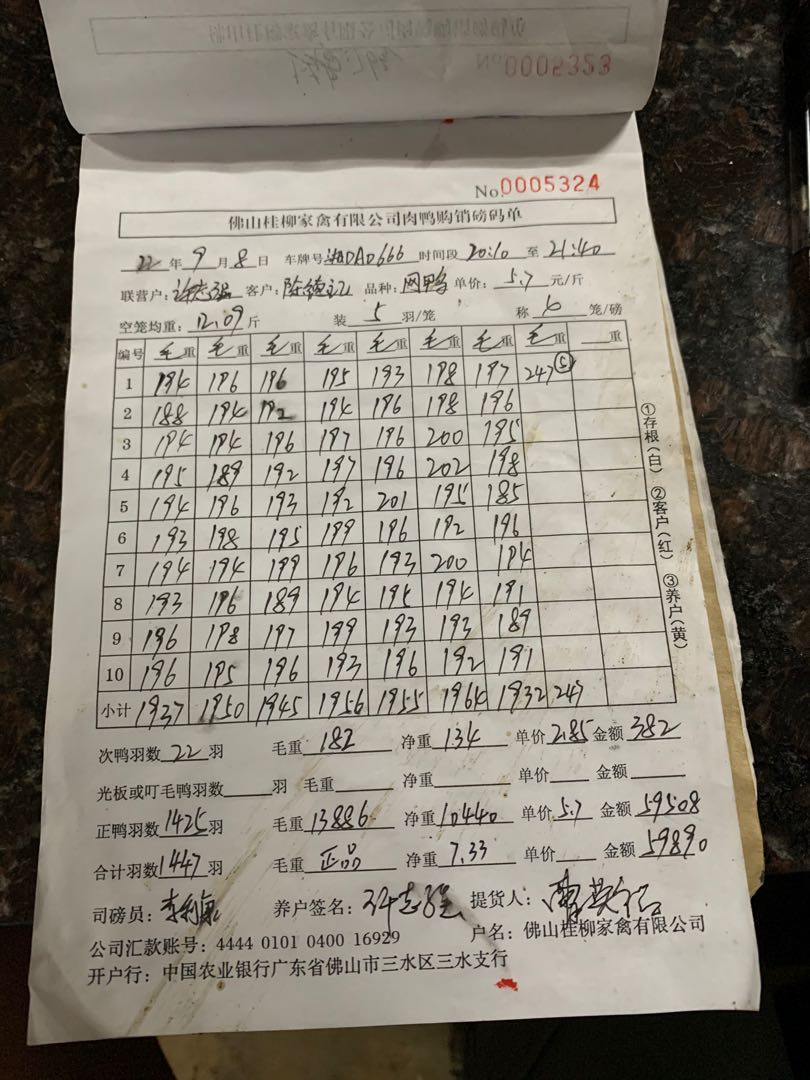 No.0005323
No.0005324
佛山桂柳家禽有限公司肉鸭购销磅码单
22年9月8日 车牌号湘DAD666 时间段20:10至21:40
联营户:许志强 客户: 品种:网鸭 单价:5.7元/斤
空笼均重:12.09斤 装5羽/笼 称6笼/磅
编号 毛重 毛重 毛重 毛重 毛重 毛重 毛重 毛重 重
1 194 196 196 195 193 198 197 247⑤
2 188 194 192 194 196 198 196
3 194 194 196 197 196 200 195
4 195 189 192 197 196 202 198
5 194 196 193 192 201 195 185
6 193 198 195 199 196 192 196
7 194 194 199 196 193 200 194
8 193 196 189 194 195 194 191
9 196 198 197 199 193 193 189
10 196 195 196 193 196 192 191
小计 1937 1950 1945 1956 1955 1964 1932 247
次鸭羽数22羽 毛重182 净重134 单价2.85 金额382
光板或叮毛鸭羽数 羽 毛重 净重 单价 金额
正鸭羽数1425羽 毛重13886 净重10440 单价5.7 金额59508
合计羽数1447羽 毛重正品 净重7.33 单价 金额59890
司磅员: 养户签名:许志强 提货人:
公司汇款账号:4444 0101 0400 16929 户名:佛山桂柳家禽有限公司
开户行:中国农业银行广东省佛山市三水区三水支行
①存根(白) ②客户(红) ③养户(黄)